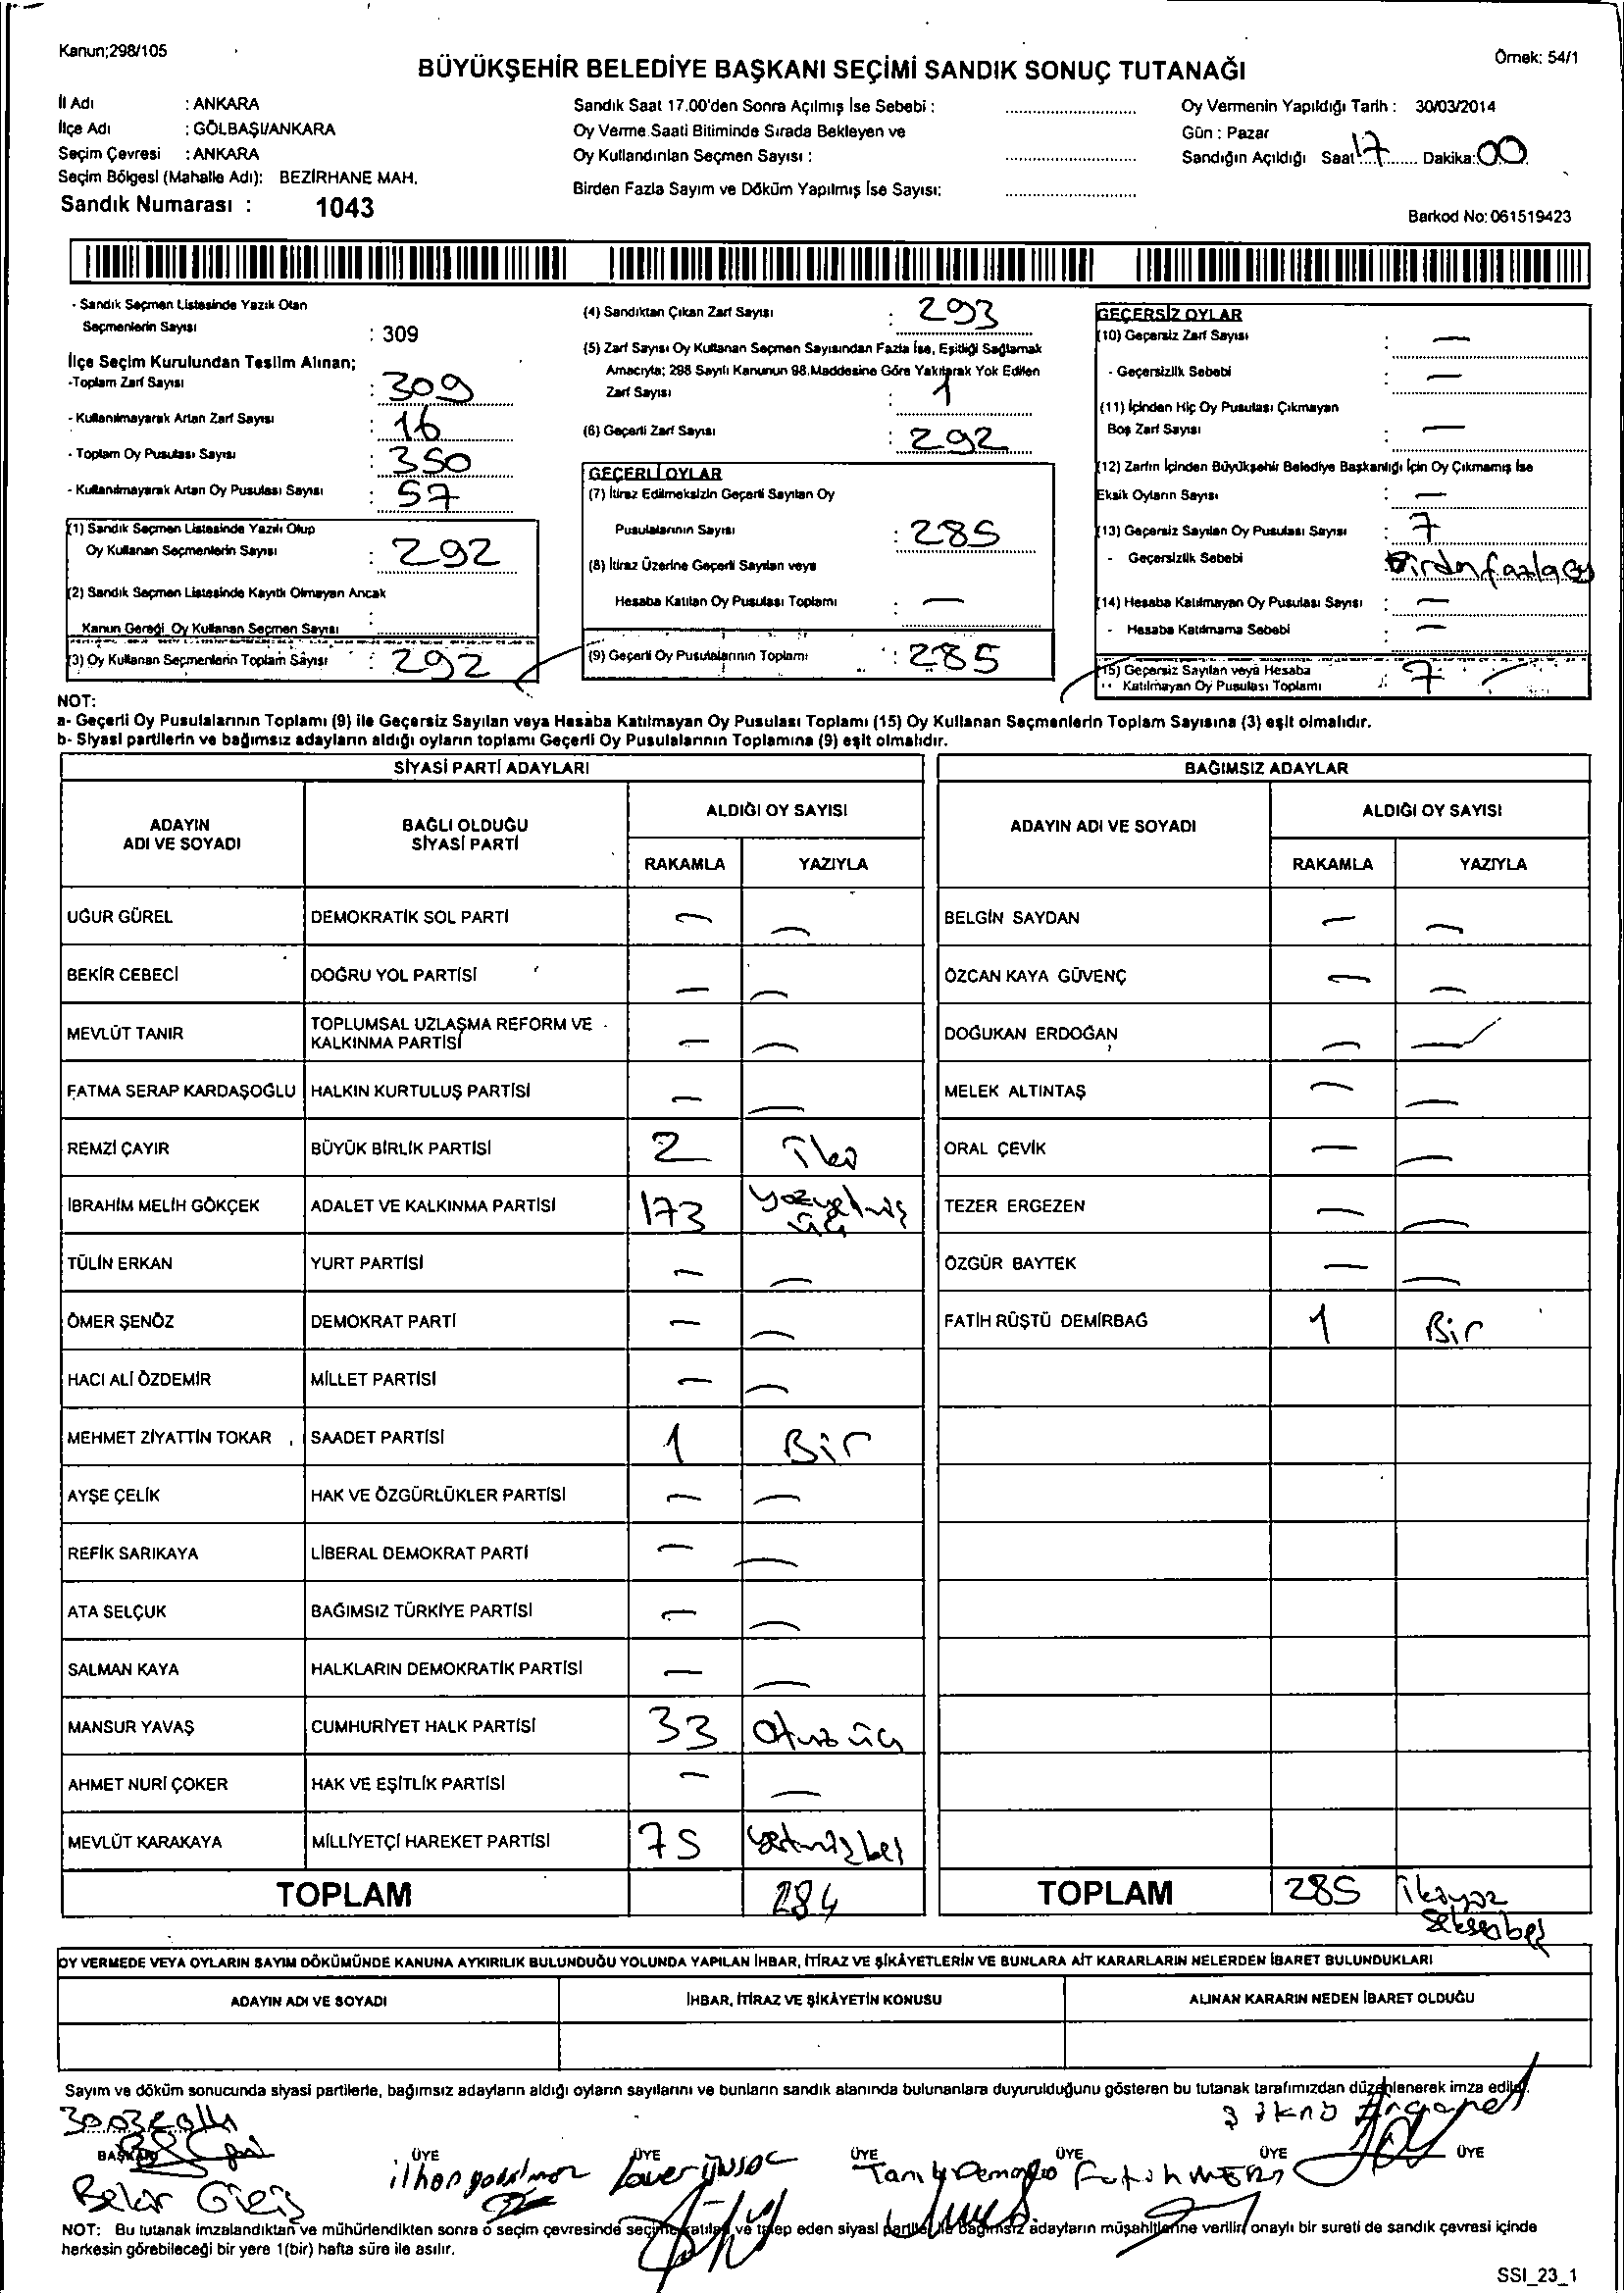 Kanun;298/105
Örnek: 54/1
BÜYÜKŞEHİR BELEDİYE BAŞKANI SEÇİMİ SANDIK SONUÇ TUTANAĞI
İl Adı : ANKARA
İlçe Adı : GÖLBAŞI/ANKARA
Seçim Çevresi : ANKARA
Seçim Bölgesi (Mahalle Adı): BEZİRHANE MAH.
Sandık Numarası : 1043
Sandık Saat 17.00'den Sonra Açılmış İse Sebebi :
Oy Verme Saati Bitiminde Sırada Bekleyen ve
Oy Kullandırılan Seçmen Sayısı :
Birden Fazla Sayım ve Döküm Yapılmış İse Sayısı:
Oy Vermenin Yapıldığı Tarih : 30/03/2014
Gün : Pazar
Sandığın Açıldığı Saat 17 Dakika: 00
Barkod No: 061519423
- Sandık Seçmen Listesinde Yazılı Olan
Seçmenlerin Sayısı : 309
İlçe Seçim Kurulundan Teslim Alınan;
-Toplam Zarf Sayısı : 309
- Kullanılmayarak Artan Zarf Sayısı : 16
- Toplam Oy Pusulası Sayısı : 350
- Kullanılmayarak Artan Oy Pusulası Sayısı : 57
(1) Sandık Seçmen Listesinde Yazılı Olup
Oy Kullanan Seçmenlerin Sayısı : 292
(2) Sandık Seçmen Listesinde Kayıtlı Olmayan Ancak
Kanun Gereği Oy Kullanan Seçmen Sayısı :
(3) Oy Kullanan Seçmenlerin Toplam Sayısı : 292
(4) Sandıktan Çıkan Zarf Sayısı : 293
(5) Zarf Sayısı Oy Kullanan Seçmen Sayısından Fazla İse, Eşitliği Sağlamak
Amacıyla; 298 Sayılı Kanunun 98.Maddesine Göre Yakılarak Yok Edilen
Zarf Sayısı : 1
(6) Geçerli Zarf Sayısı : 292
GEÇERLİ OYLAR
(7) İtiraz Edilmeksizin Geçerli Sayılan Oy
Pusulalarının Sayısı : 285
(8) İtiraz Üzerine Geçerli Sayılan veya
Hesaba Katılan Oy Pusulası Toplamı : —
(9) Geçerli Oy Pusulalarının Toplamı : 285
GEÇERSİZ OYLAR
(10) Geçersiz Zarf Sayısı : —
- Geçersizlik Sebebi : —
(11) İçinden Hiç Oy Pusulası Çıkmayan
Boş Zarf Sayısı : —
(12) Zarfın İçinden Büyükşehir Belediye Başkanlığı İçin Oy Çıkmamış İse
Eksik Oyların Sayısı : —
(13) Geçersiz Sayılan Oy Pusulası Sayısı : 7
- Geçersizlik Sebebi : Birden fazla oy
(14) Hesaba Katılmayan Oy Pusulası Sayısı : —
- Hesaba Katılmama Sebebi : —
(15) Geçersiz Sayılan veya Hesaba
Katılmayan Oy Pusulası Toplamı : 7
NOT:
a- Geçerli Oy Pusulalarının Toplamı (9) ile Geçersiz Sayılan veya Hesaba Katılmayan Oy Pusulası Toplamı (15) Oy Kullanan Seçmenlerin Toplam Sayısına (3) eşit olmalıdır.
b- Siyasi partilerin ve bağımsız adayların aldığı oyların toplamı Geçerli Oy Pusulalarının Toplamına (9) eşit olmalıdır.
SİYASİ PARTİ ADAYLARI
ADAYIN ADI VE SOYADI
BAĞLI OLDUĞU SİYASİ PARTİ
ALDIĞI OY SAYISI
RAKAMLA YAZIYLA
UĞUR GÜREL DEMOKRATİK SOL PARTİ — —
BEKİR CEBECİ DOĞRU YOL PARTİSİ — —
MEVLÜT TANIR TOPLUMSAL UZLAŞMA REFORM VE KALKINMA PARTİSİ — —
FATMA SERAP KARDAŞOĞLU HALKIN KURTULUŞ PARTİSİ — —
REMZİ ÇAYIR BÜYÜK BİRLİK PARTİSİ 2 İki
İBRAHİM MELİH GÖKÇEK ADALET VE KALKINMA PARTİSİ 173 yüzyetmiş üç
TÜLİN ERKAN YURT PARTİSİ — —
ÖMER ŞENÖZ DEMOKRAT PARTİ — —
HACI ALİ ÖZDEMİR MİLLET PARTİSİ — —
MEHMET ZİYATTİN TOKAR SAADET PARTİSİ 1 Bir
AYŞE ÇELİK HAK VE ÖZGÜRLÜKLER PARTİSİ — —
REFİK SARIKAYA LİBERAL DEMOKRAT PARTİ — —
ATA SELÇUK BAĞIMSIZ TÜRKİYE PARTİSİ — —
SALMAN KAYA HALKLARIN DEMOKRATİK PARTİSİ — —
MANSUR YAVAŞ CUMHURİYET HALK PARTİSİ 33 otuz üç
AHMET NURİ ÇOKER HAK VE EŞİTLİK PARTİSİ — —
MEVLÜT KARAKAYA MİLLİYETÇİ HAREKET PARTİSİ 75 yetmişbeş
TOPLAM 284
BAĞIMSIZ ADAYLAR
ADAYIN ADI VE SOYADI
ALDIĞI OY SAYISI
RAKAMLA YAZIYLA
BELGİN SAYDAN — —
ÖZCAN KAYA GÜVENÇ — —
DOĞUKAN ERDOĞAN — —
MELEK ALTINTAŞ — —
ORAL ÇEVİK — —
TEZER ERGEZEN — —
ÖZGÜR BAYTEK — —
FATİH RÜŞTÜ DEMİRBAĞ 1 Bir
TOPLAM 285 ikiyüz seksenbeş
OY VERMEDE VEYA OYLARIN SAYIM DÖKÜMÜNDE KANUNA AYKIRILIK BULUNDUĞU YOLUNDA YAPILAN İHBAR, İTİRAZ VE ŞİKÂYETLERİN VE BUNLARA AİT KARARLARIN NELERDEN İBARET BULUNDUKLARI
ADAYIN ADI VE SOYADI
İHBAR, İTİRAZ VE ŞİKÂYETİN KONUSU
ALINAN KARARIN NEDEN İBARET OLDUĞU
Sayım ve döküm sonucunda siyasi partilerle, bağımsız adayların aldığı oyların sayılarını ve bunların sandık alanında bulunanlara duyurulduğunu gösteren bu tutanak tarafımızdan düzenlenerek imza edildi.
BAŞKAN ÜYE ÜYE ÜYE ÜYE ÜYE ÜYE
Bekir
NOT: Bu tutanak imzalandıktan ve mühürlendikten sonra o seçim çevresinde seçime katılan ve talep eden siyasi partiler ile bağımsız adayların müşahitlerine verilir/ onaylı bir sureti de sandık çevresi içinde
herkesin görebileceği bir yere 1(bir) hafta süre ile asılır.
SSI_23_1